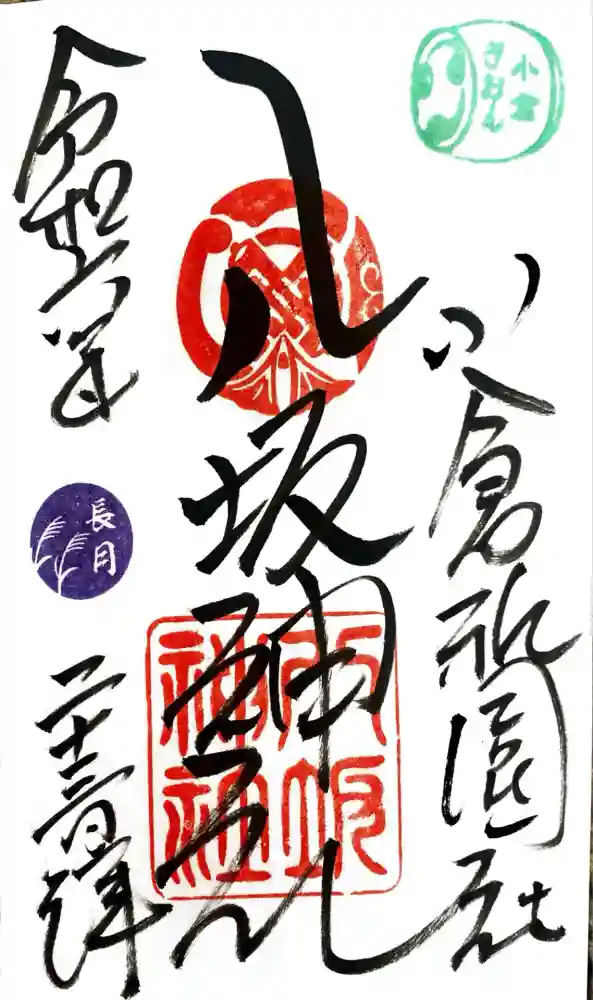 小倉
ぎおん
小倉祇園社
八坂神社
八坂
神社
令和
年
長月
二十三日